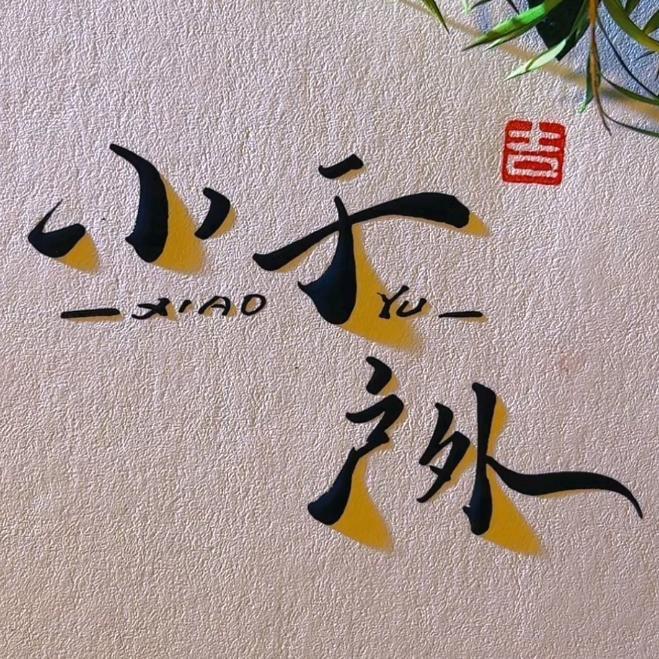 小于
XIAO YU
户外
吉